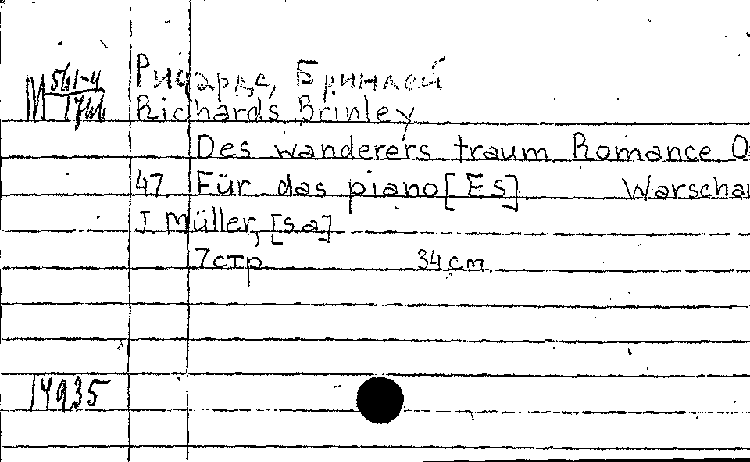 Ричардс, Бринлей
М 561-4/1766
Richards Brinley
Des wanderers traum Romance O
47. Für das piano [Es] Warschau
J. Müller, [s.a.]
7 стр 34 cm
14935